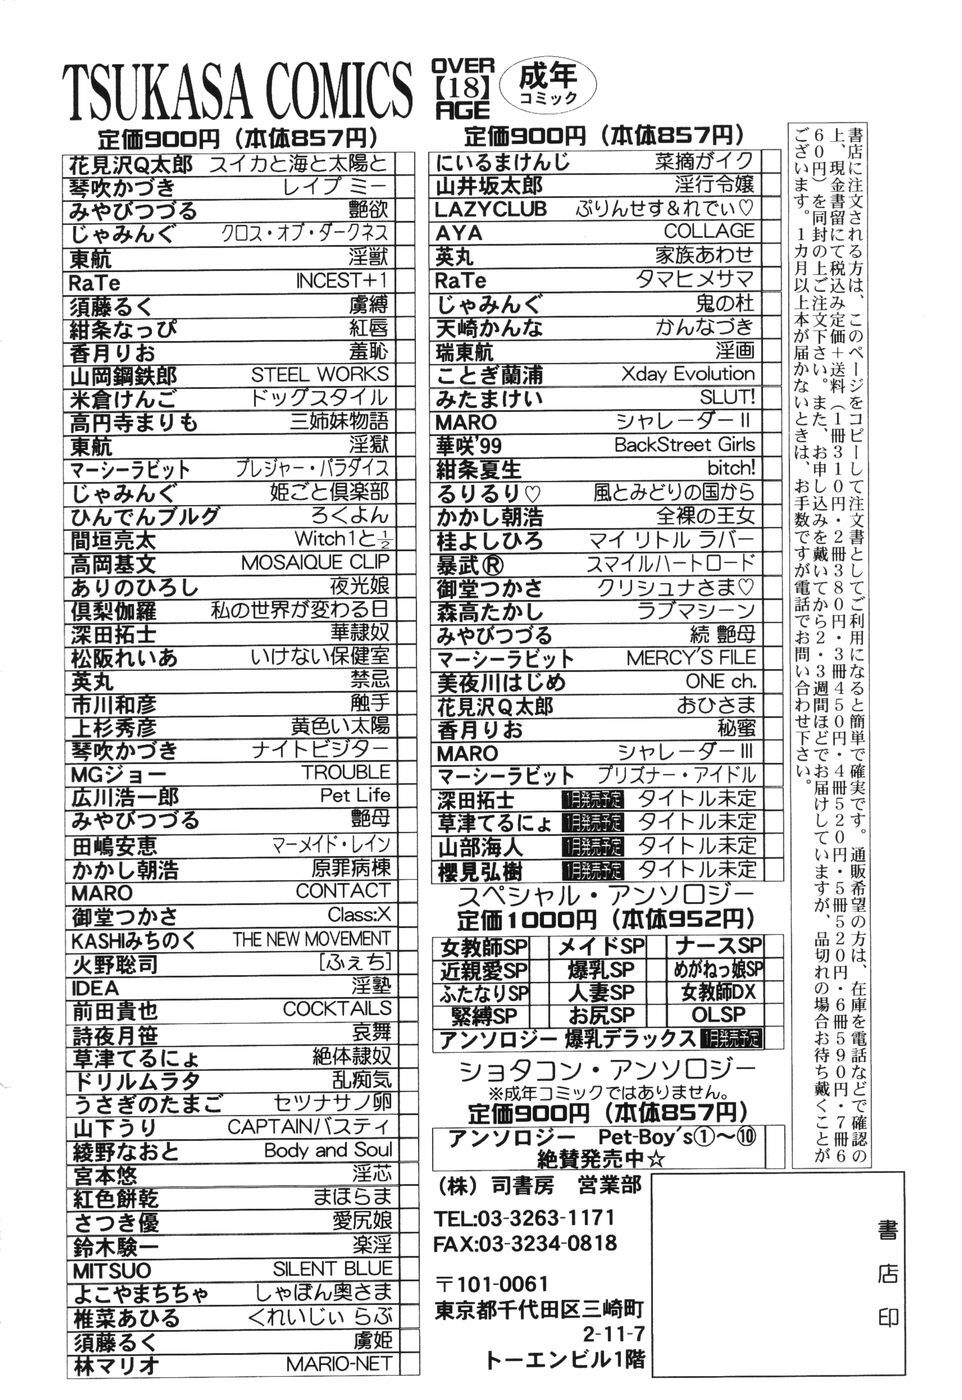 TSUKASA COMICS
OVER
【18】
AGE
成年
コミック
定価900円（本体857円）
花見沢Q太郎 スイカと海と太陽と
琴吹かづき レイプ ミー
みやびつづる 艶欲
じゃみんぐ クロス・オブ・ダークネス
東航 淫獣
RaTe INCEST+1
須藤るく 虜縛
紺条なっぴ 紅唇
香月りお 羞恥
山岡鋼鉄郎 STEEL WORKS
米倉けんご ドッグスタイル
高円寺まりも 三姉妹物語
東航 淫獄
マーシーラビット プレジャー・パラダイス
じゃみんぐ 姫ごと倶楽部
ひんでんブルグ ろくよん
間垣亮太 Witch1と½
高岡基文 MOSAIQUE CLIP
ありのひろし 夜光娘
倶梨伽羅 私の世界が変わる日
深田拓士 華隷奴
松阪れいあ いけない保健室
英丸 禁忌
市川和彦 触手
上杉秀彦 黄色い太陽
琴吹かづき ナイトビジター
MGジョー TROUBLE
広川浩一郎 Pet Life
みやびつづる 艶母
田嶋安恵 マーメイド・レイン
かかし朝浩 原罪病棟
MARO CONTACT
御堂つかさ Class:X
KASHIみちのく THE NEW MOVEMENT
火野聡司 [ふぇち]
IDEA 淫塾
前田貴也 COCKTAILS
詩夜月笹 哀舞
草津てるにょ 絶体隷奴
ドリルムラタ 乱痴気
うさぎのたまご セツナサノ卵
山下うり CAPTAINバスティ
綾野なおと Body and Soul
宮本悠 淫芯
紅色餅乾 まほらま
さつき優 愛尻娘
鈴木験一 楽淫
MITSUO SILENT BLUE
よこやまちちゃ しゃぼん奥さま
椎菜あひる くれいじぃ らぶ
須藤るく 虜姫
林マリオ MARIO-NET
定価900円（本体857円）
にいるまけんじ 菜摘がイク
山井坂太郎 淫行令嬢
LAZYCLUB ぷりんせす＆れでぃ♡
AYA COLLAGE
英丸 家族あわせ
RaTe タマヒメサマ
じゃみんぐ 鬼の杜
天崎かんな かんなづき
瑞東航 淫画
ことぎ蘭浦 Xday Evolution
みたまけい SLUT!
MARO シャレーダーⅡ
華咲'99 BackStreet Girls
紺条夏生 bitch!
るりるり♡ 風とみどりの国から
かかし朝浩 全裸の王女
桂よしひろ マイ リトル ラバー
暴武Ⓡ スマイルハートロード
御堂つかさ クリシュナさま♡
森高たかし ラブマシーン
みやびつづる 続 艶母
マーシーラビット MERCY'S FILE
美夜川はじめ ONE ch.
花見沢Q太郎 おひさま
香月りお 秘蜜
MARO シャレーダーⅢ
マーシーラビット プリズナー・アイドル
深田拓士 1月発売予定 タイトル未定
草津てるにょ 1月発売予定 タイトル未定
山部海人 1月発売予定 タイトル未定
櫻見弘樹 1月発売予定 タイトル未定
スペシャル・アンソロジー
定価1000円（本体952円）
女教師SP メイドSP ナースSP
近親愛SP 爆乳SP めがねっ娘SP
ふたなりSP 人妻SP 女教師DX
緊縛SP お尻SP OLSP
アンソロジー 爆乳デラックス 1月発売予定
ショタコン・アンソロジー
※成年コミックではありません。
定価900円（本体857円）
アンソロジー Pet-Boy's①〜⑩
絶賛発売中☆
（株）司書房 営業部
TEL:03-3263-1171
FAX:03-3234-0818
〒101-0061
東京都千代田区三崎町
2-11-7
トーエンビル1階
書店に注文される方は、このページをコピーして注文書としてご利用になると簡単で確実です。通販希望の方は、在庫を電話などで確認の
上、現金書留にて税込み定価＋送料（1冊310円・2冊380円・3冊450円・4冊520円・5冊520円・6冊590円・7冊6
60円）を同封の上ご注文下さい。また、お申し込みを戴いてから2・3週間ほどでお届けしていますが、品切れの場合お待ち戴くことが
ございます。1カ月以上本が届かないときは、お手数ですが電話でお問い合わせ下さい。
書店印